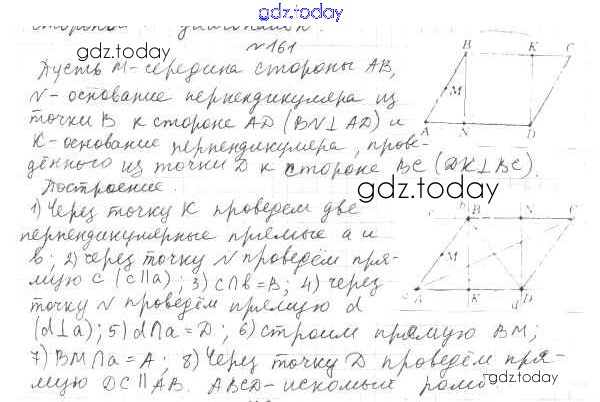 gdz.today
стороной диагонали.
gdz.today
№161
Пусть М-середина стороны АВ,
N-основание перпендикуляра из
точки В к стороне AD (BN⊥AD) и
К-основание перпендикуляра, прове-
дённого из точки D к стороне BC (DK⊥BC).
Построение.
gdz.today
1) Через точку К проведем две
перпендикулярные прямые a и
b; 2) через точку N проведём пря-
мую c (c∥a); 3) c∩b=B; 4) через
точку N проведём прямую d
(d⊥a); 5) d∩a=D; 6) строим прямую BM;
7) BM∩a=A; 8) Через точку D проведём пря-
мую DC∥AB. ABCD-искомый ромб.
gdz.today
B K C
M
A N D
c b B N C
M
a A K d D